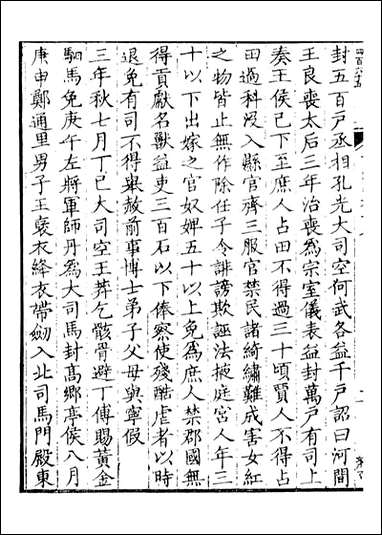 封五百戸丞相孔光大司空何武各益千戸詔曰河間
王良喪太后三年治喪爲宗室儀表益封萬戸有司上
奏王侯已下至庶人占田不得過三十頃賈人不得占
田過科沒入縣官齊三服官禁民諸綺繡難成害女紅
之物皆止無作除任子令誹謗欺誣法掖庭宮人年三
十以下出嫁之官奴婢五十以上免爲庶人禁郡國無
得貢獻名獸益吏三百石以下俸察使殘酷虐者以時
退免有司不得舉赦前事博士弟子父母與寧假
三年秋七月丁巳大司空王莽乞骸骨避丁傅賜黃金
駟馬免庚午左將軍師丹爲大司馬封高鄉亭侯八月
庚申鄭通里男子王襃衣絳衣帶劒入北司馬門殿東